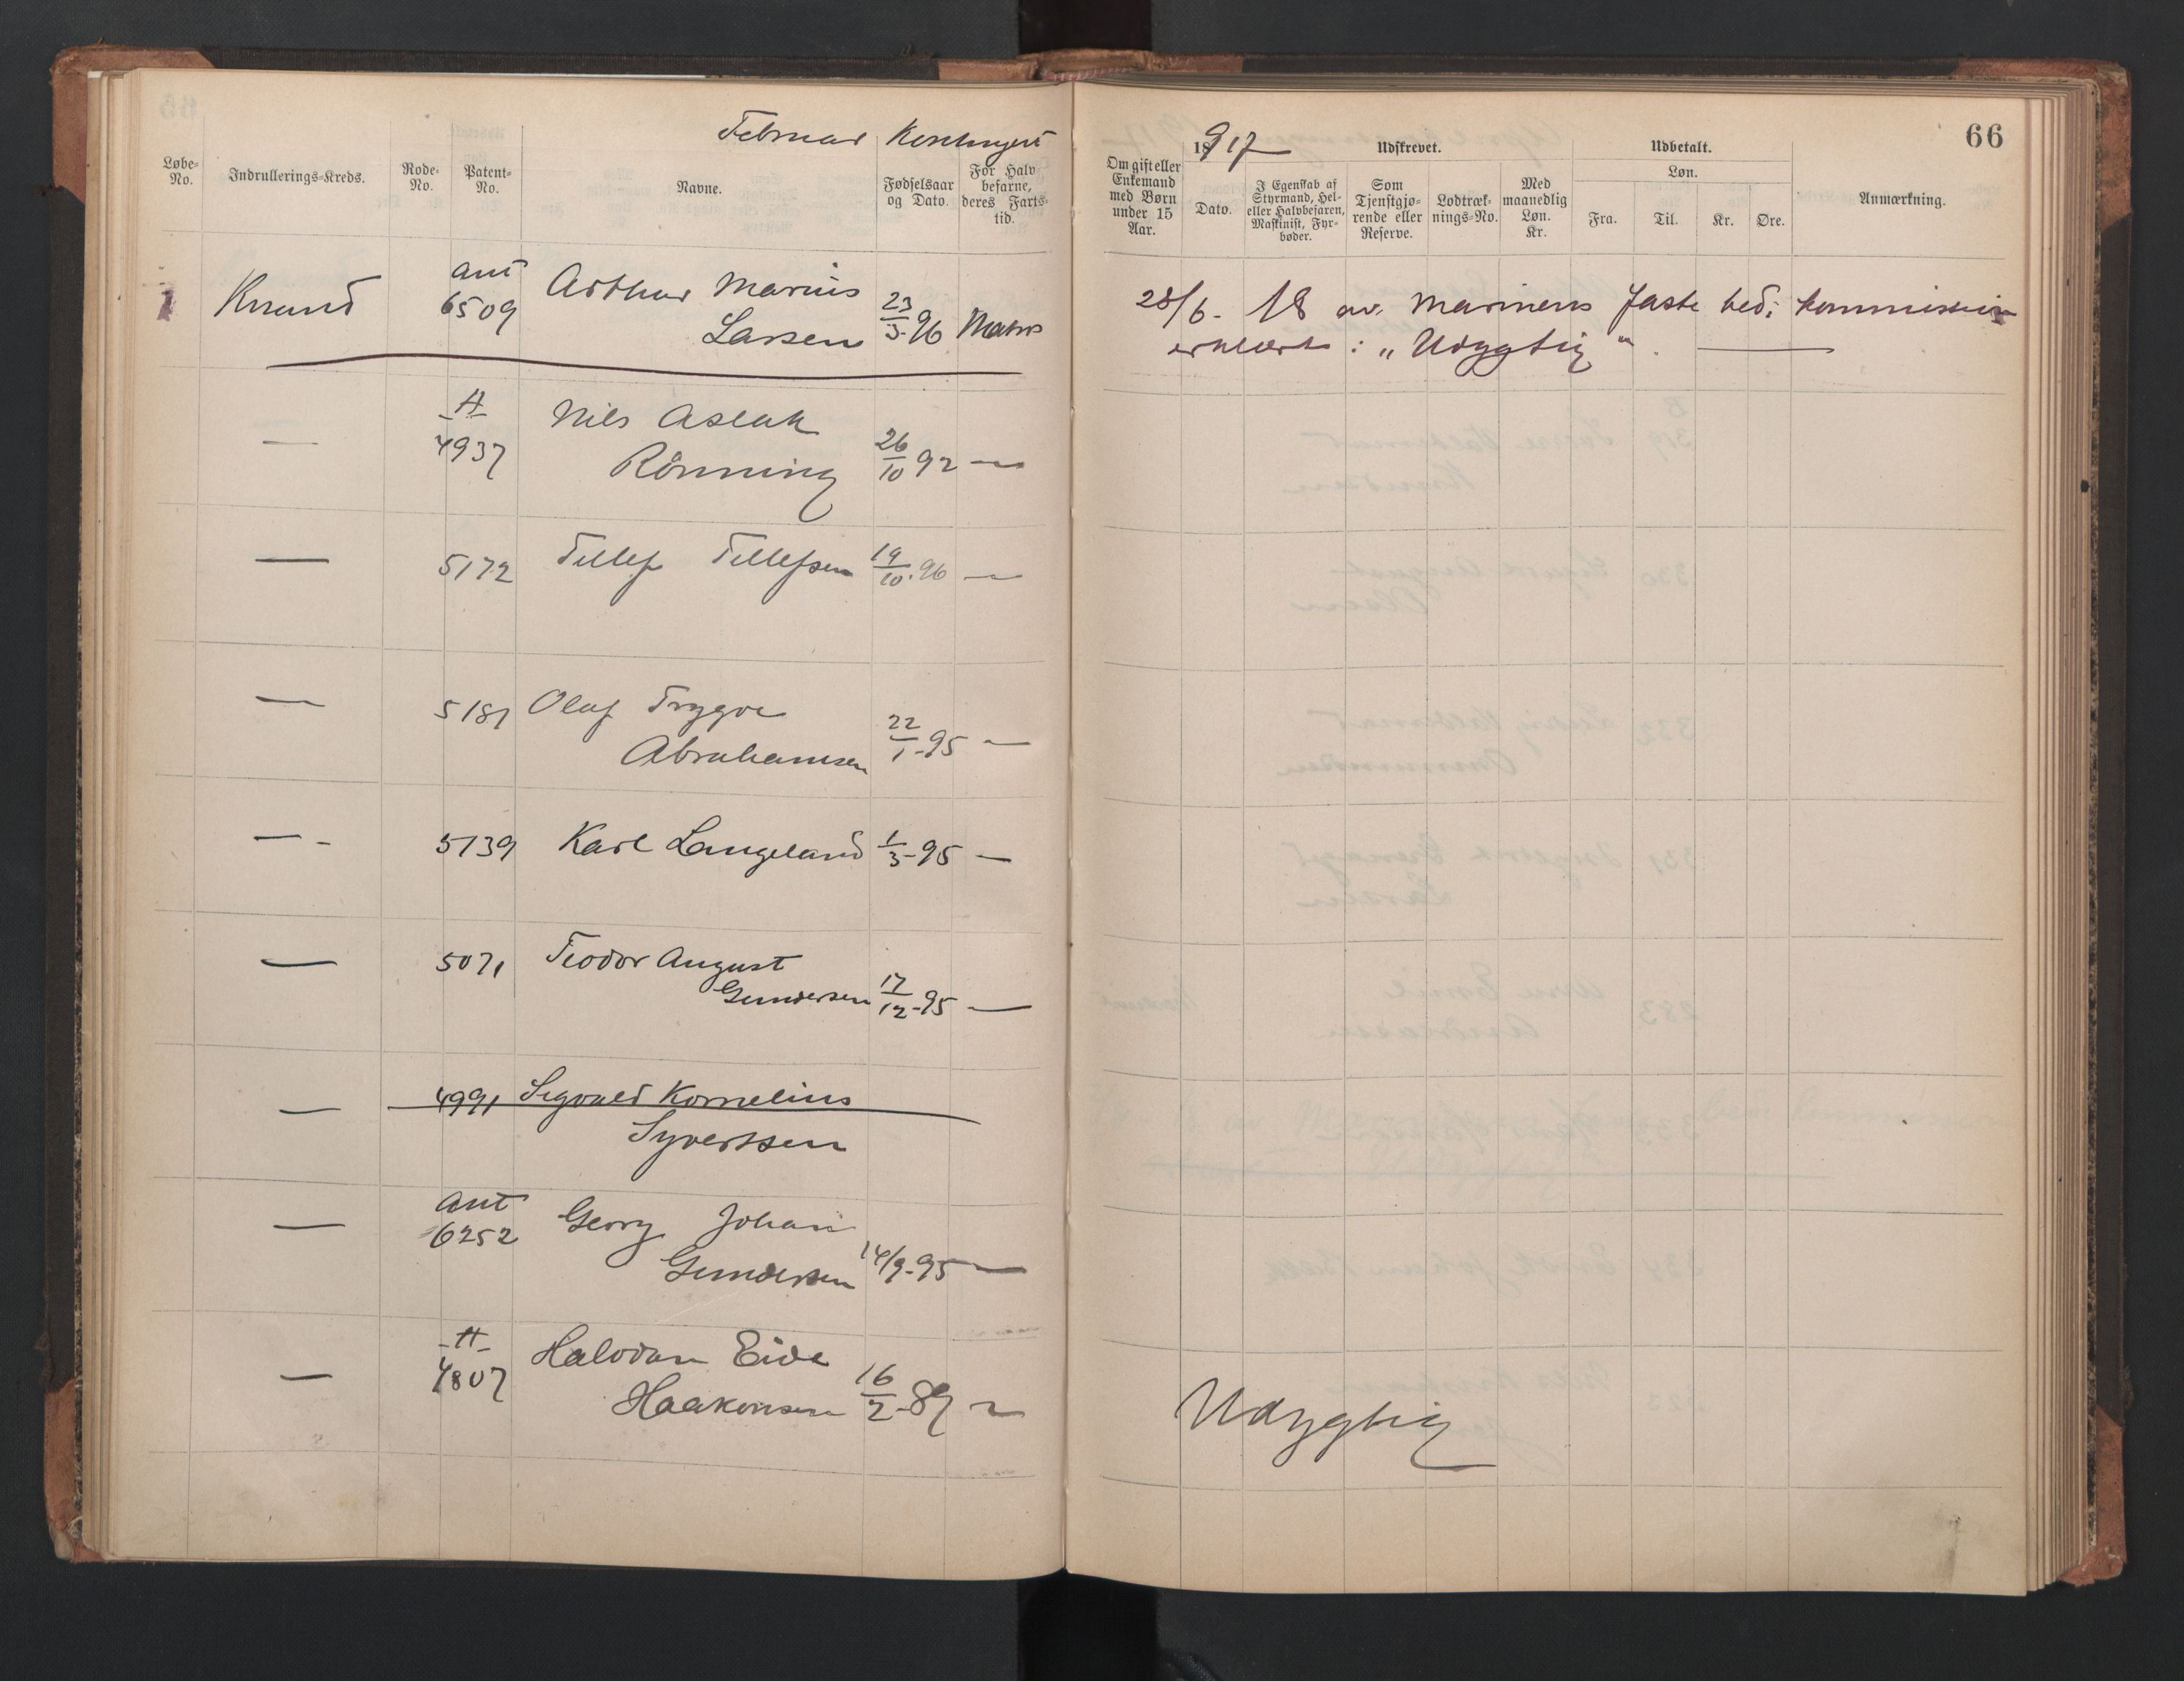 Februar Kontingent 1917
66
Løbe-No.
Indrullerings-Kreds.
Rode-No.
Patent-No.
Navne.
Fødselsaar og Dato.
For Halvbefarne, deres Fartstid.
Om gift eller Enkemand med Børn under 15 Aar.
Dato.
Udskrevet.
I Egenskab af Styrmand, Hel- eller Halvbefaren, Maskinist, Fyrbøder.
Som Tjenstgjørende eller Reserve.
Lodtræknings-No.
Med maanedlig Løn. Kr.
Udbetalt.
Løn.
Fra.
Til.
Kr.
Øre.
Anmærkning.
1 Krsand ant 6509 Arthur Marius
Larsen 23/3-96 Matros
28/6-18 av Marinens faste bed: kommission
erklært: „Udygtig".
— A 4937 Nils Aslak
Rönning 26/10 92 —
— 5172 Tellef Tellefsen 19/10-96 —
— 5181 Olaf Trygve
Abrahamsen 22/1-95 —
— 5139 Karl Langeland 1/3-95 —
— 5071 Teodor August
Gundersen 17/12-95 —
— 4991 Sigvald Kornelius
Syvertsen
— ant 6252 Georg Johan
Gundersen 14/9-95 —
— A 4807 Halvdan Eide
Haakonsen 16/2-89 —
Udygtig